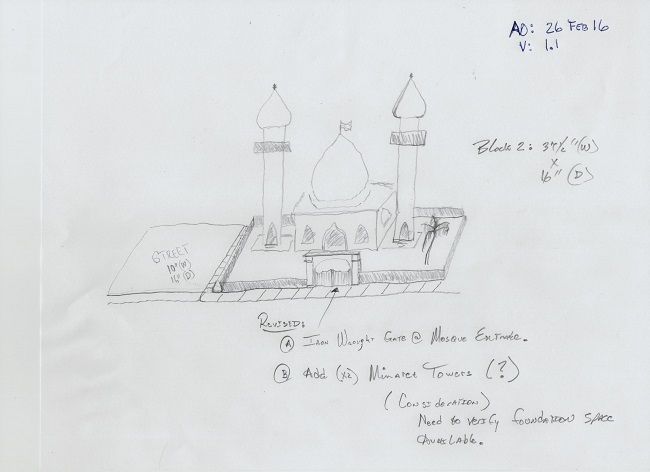 AO: 26 FEB 16
V: 1.1
Block 2: 37 1/2" (W)
x
16" (D)
STREET
10" (W)
16" (D)
REVISED:
(A) IRON WROUGHT GATE @ MOSQUE ENTRANCE.
(B) ADD (x2) MINARET TOWERS (?)
(CONSIDERATION)
NEED TO VERIFY FOUNDATION SPACE
AVAILABLE.